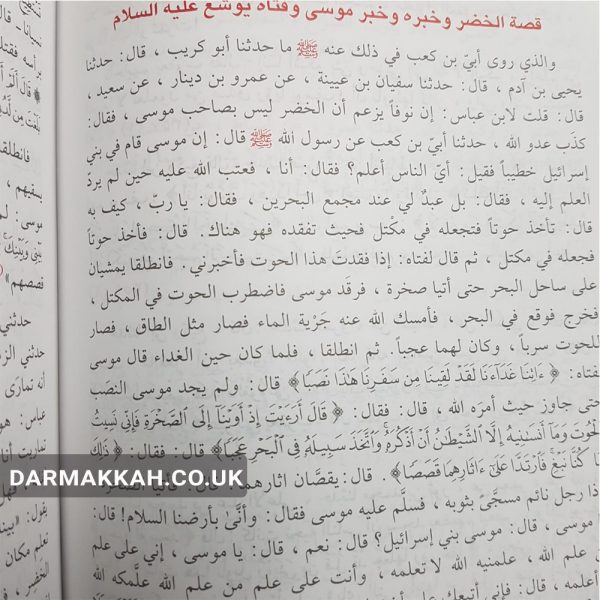 قصة الخضر وخبره وخبر موسى وفتاه يوشع عليه السلام
والذي روى أبيّ بن كعب في ذلك عنه ﷺ ما حدثنا أبو كريب ، قال: حدثنا
يحيى بن آدم ، قال: حدثنا سفيان بن عيينة ، عن عمرو بن دينار ، عن سعيد ،
قال: قلت لابن عباس: إن نوفاً يزعم أن الخضر ليس بصاحب موسى ، فقال:
كذَب عدو الله ، حدثنا أبيّ بن كعب عن رسول الله ﷺ قال: إن موسى قام في بني
إسرائيل خطيباً فقيل: أيّ الناس أعلم؟ فقال: أنا ، فعتب الله عليه حين لم يردّ
العلم إليه ، فقال: بل عبدٌ لي عند مجمع البحرين ، فقال: يا ربّ ، كيف به
قال: تأخذ حوتاً فتجعله في مكْتل فحيث تفقده فهو هناك. قال: فأخذ حوتاً
فجعله في مكتل ، ثم قال لفتاه: إذا فقدتَ هذا الحوت فأخبرني. فانطلقا يمشيان
على ساحل البحر حتى أتيا صخرة ، فرقَد موسى فاضطرب الحوت في المكتل ،
فخرج فوقع في البحر ، فأمسك الله عنه جَرْية الماء فصار مثل الطاق ، فصار
للحوت سرباً ، وكان لهما عجباً. ثم انطلقا ، فلما كان حين الغداء قال موسى
لفتاه: ﴿ ءَاتِنَا غَدَآءَنَا لَقَدْ لَقِينَا مِن سَفَرِنَا هَٰذَا نَصَبًا ﴾ قال: ولم يجد موسى النصَب
حتى جاوز حيث أمرَه الله ، قال: فقال: ﴿ قَالَ أَرَءَيْتَ إِذْ أَوَيْنَآ إِلَى ٱلصَّخْرَةِ فَإِنِّي نَسِيتُ
ٱلْحُوتَ وَمَآ أَنسَىٰنِيهُ إِلَّا ٱلشَّيْطَٰنُ أَنْ أَذْكُرَهُۥ وَٱتَّخَذَ سَبِيلَهُۥ فِي ٱلْبَحْرِ عَجَبًا﴾ قال: فقال: ﴿ذَٰلِكَ
مَا كُنَّا نَبْغِ فَٱرْتَدَّا عَلَىٰٓ ءَاثَارِهِمَا قَصَصًا﴾. قال: يقصّان آثارهما.
DARMAKKAH.CO.UK
رجل نائم مسجًّى بثوبه ، فسلَّم عليه موسى فقال: وأنّى بأرضنا السلام! قال:
موسى ، قال: موسى بني إسرائيل؟ قال: نعم ، قال: يا موسى ، إني على علم
علم الله ، علمنيه الله لا تعلمه ، وأنت على علم من علم الله علَّمكه الله
قال: فإني أتبعك على